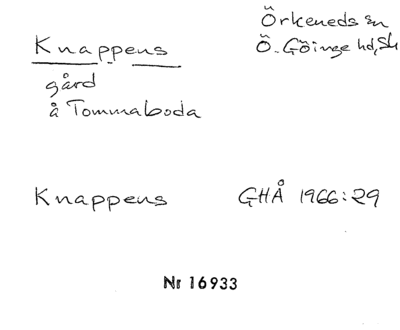 Knappens
gård
å Tommaboda
Örkeneds sn
Ö. Göinge hd, Sk
Knappens GHÅ 1966:29
Nr 16933